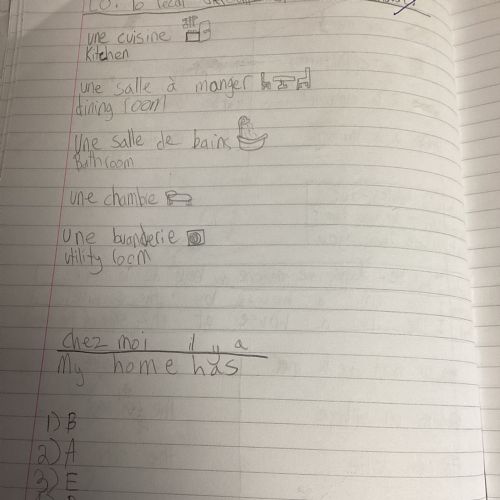 LO: To recal
une cuisine
Kitchen
une salle à manger
dining room
Une salle de bains
Bathroom
une chambre
une buanderie
utility room
Chez moi il y a
My home has
1) B
2) A
3) E